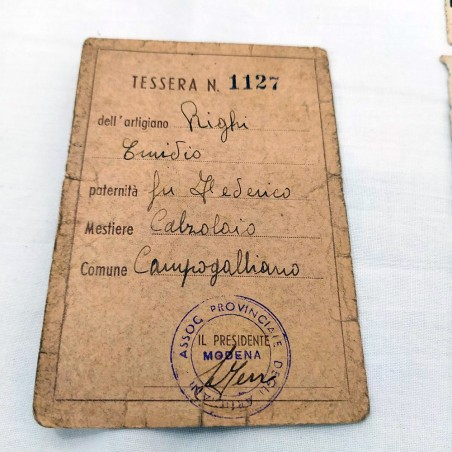 TESSERA N. 1127
dell'artigiano Righi
Emidio
paternità fu Federico
Mestiere Calzolaio
Comune Campogalliano
ASSOC. PROVINCIALE DEGLI ARTIGIANI
IL PRESIDENTE
MODENA